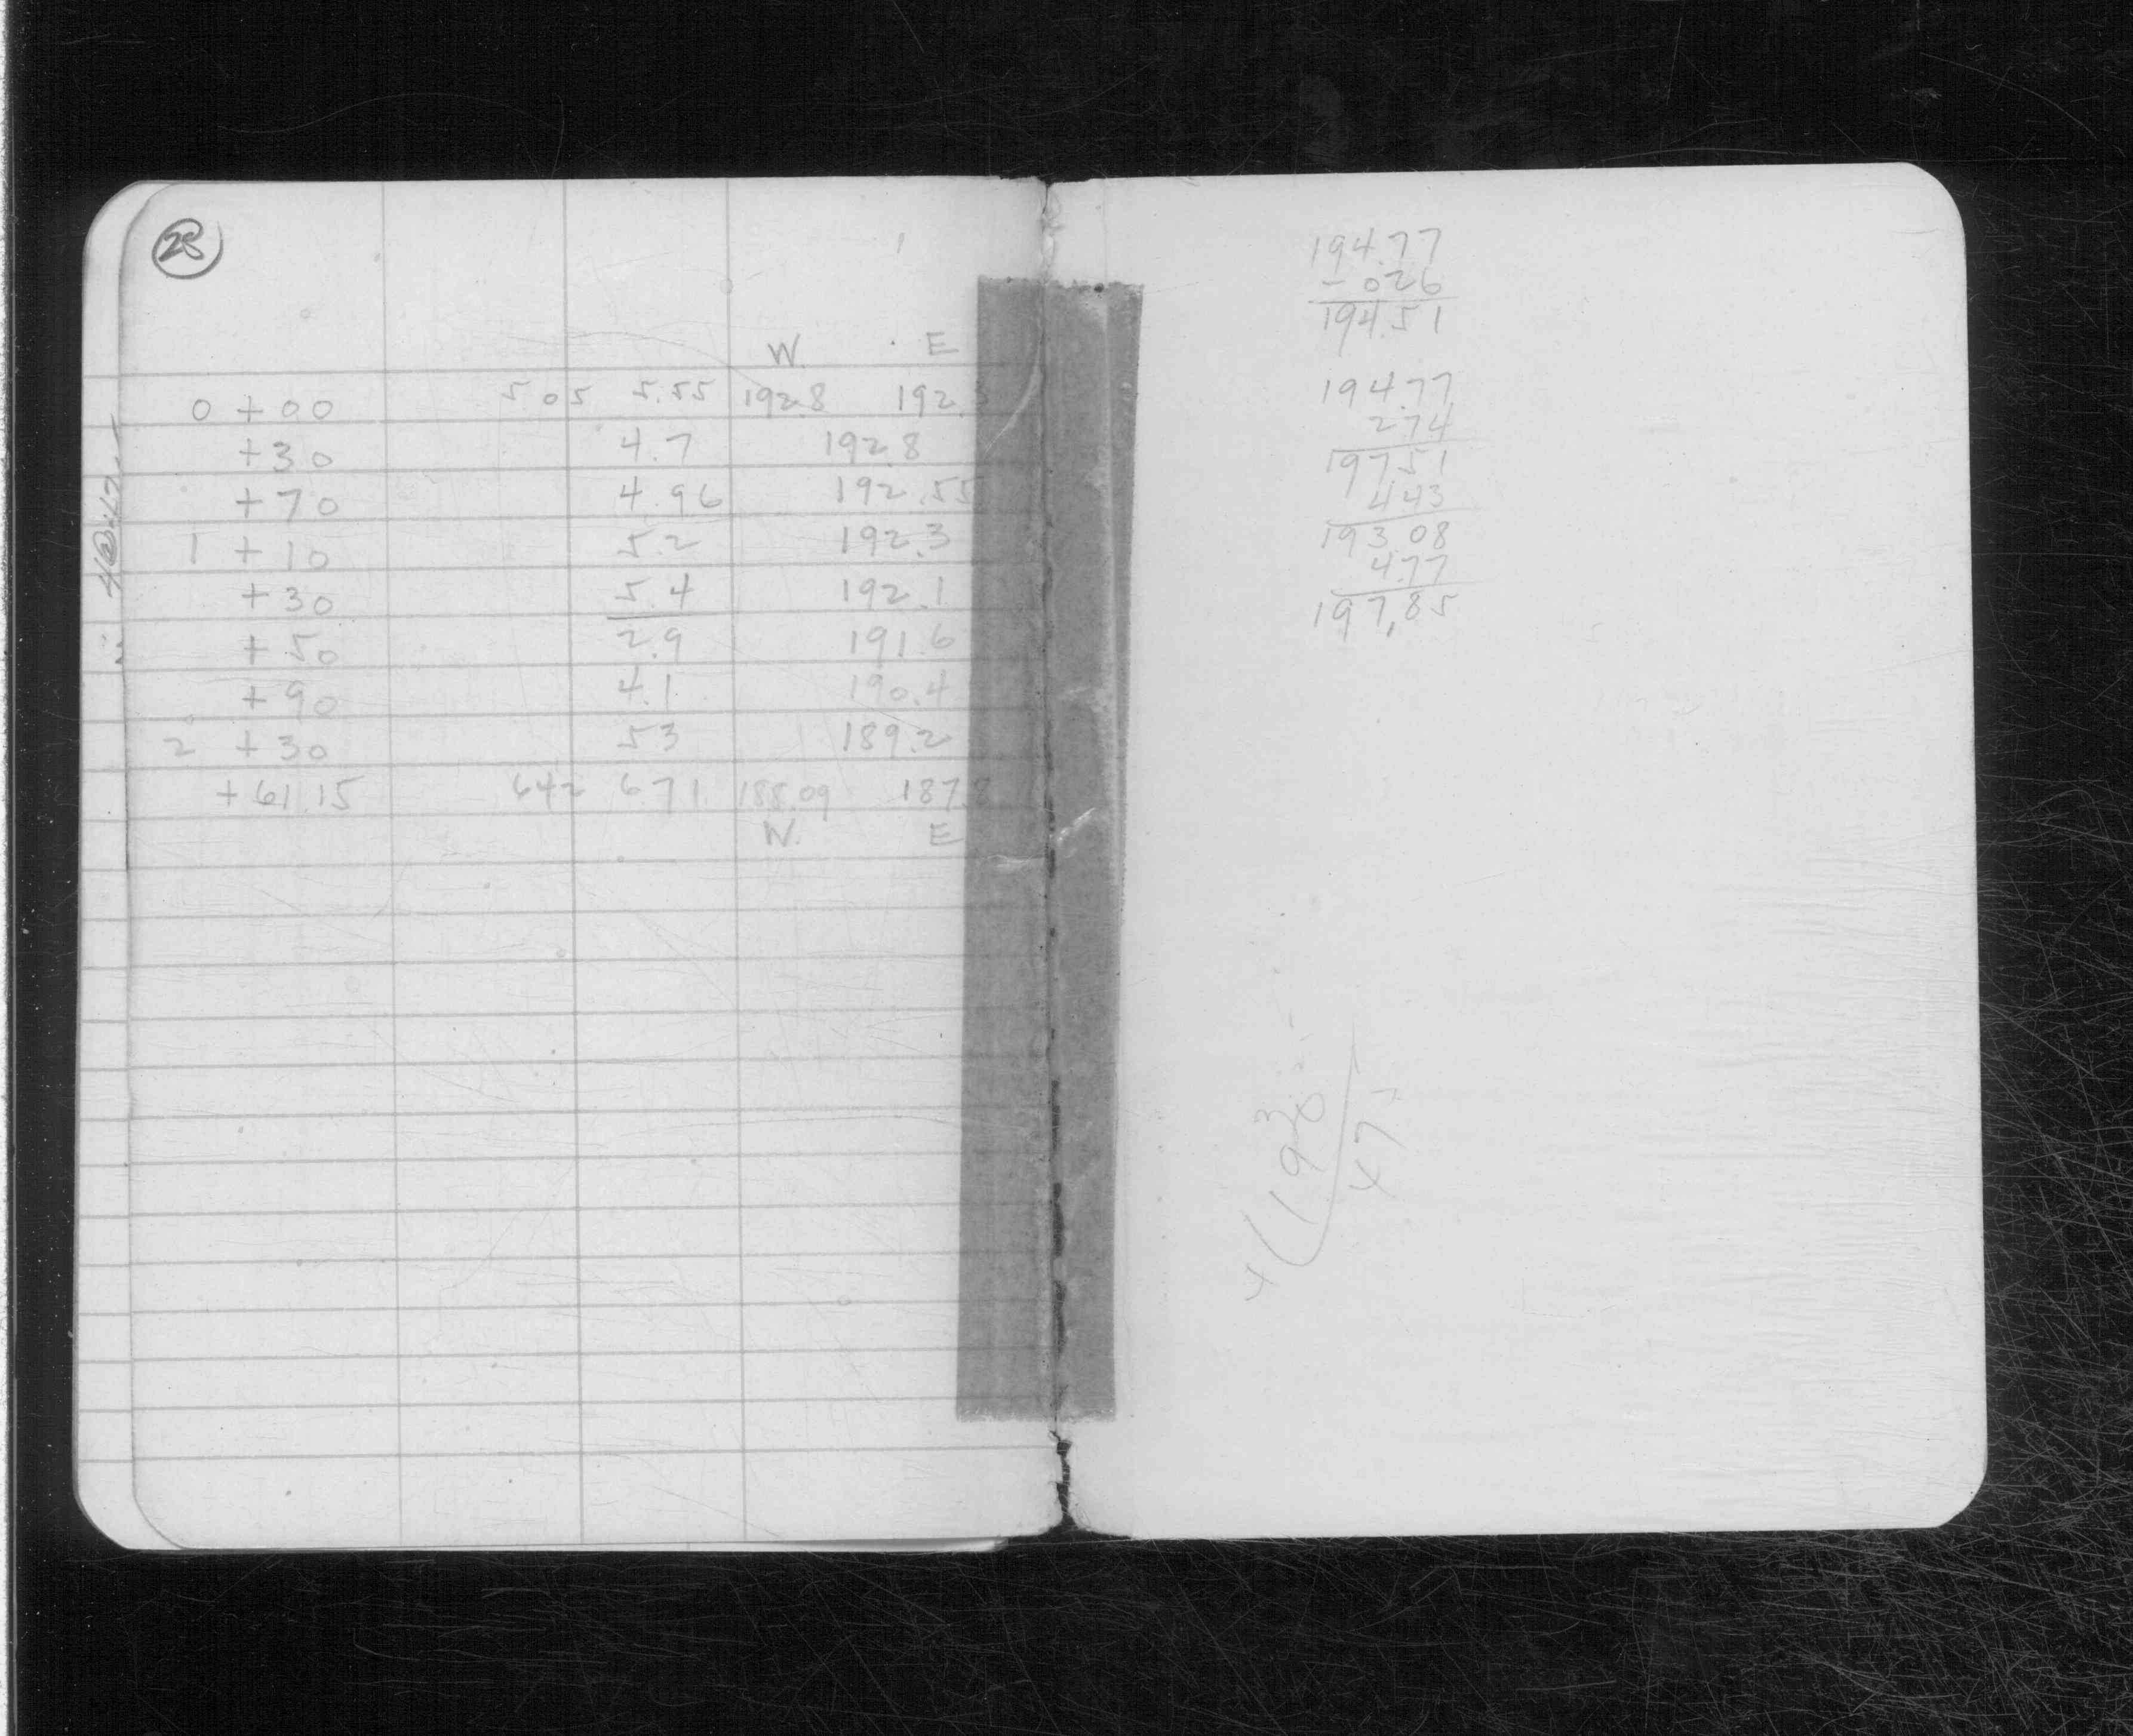 28
W. E
0 + 00 5 05 5.55 192.8 192.3
+30 4.7 192.8
+70 4.96 192.55
1 + 10 5.2 192.3
+30 5.4 192.1
+50 2.9 191.6
+90 4.1 190.4
2 +30 53 189.2
+61.15 642 6.71 188.09 187.8
W. E
194.77
- 026
194.51
194.77
274
197.51
4.43
193.08
4.77
197.85